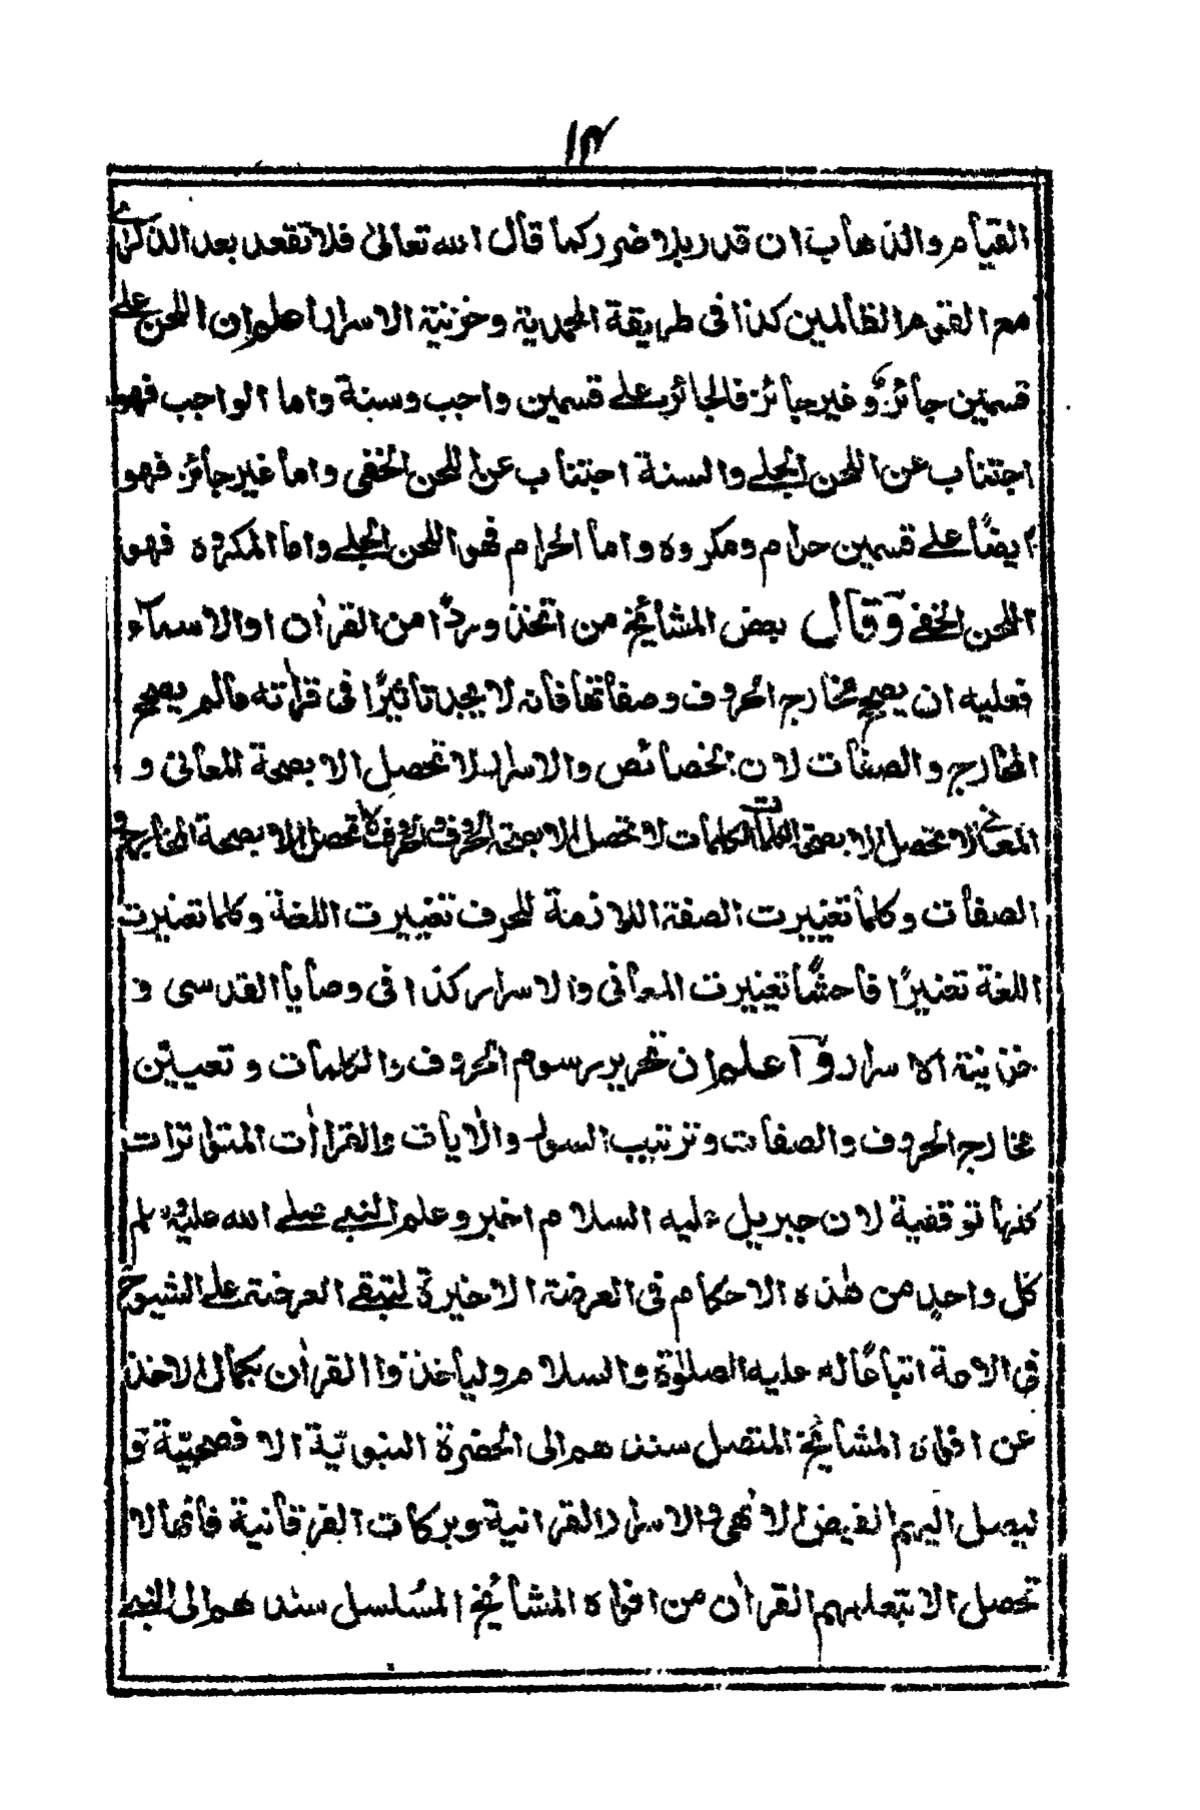 ١٣
القيام والذهاب ان قدر بلا ضرر كما قال الله تعالىٰ فلا تقعد بعد الذكرىٰ
مع القوم الظالمين كذا فى طريقة المحمدية وخزينة الاسرار اعلم ان اللحن على
قسمين جائز وغير جائز فالجائز على قسمين واجب وسنة واما الواجب فهو
اجتناب عن اللحن الجلے والسنة اجتناب عن اللحن الخفى واما غير جائز فهو
ايضًا علے قسمين حرام ومكروه واما الحرام فهو اللحن الجلے واما المكروه فهو
اللحن الخفے وقال بعض المشائخ من اتخذ وردًا من القرآن او الاسماء
فعليه ان يصحح مخارج الحروف وصفاتها فانه لا يجد تأثيرًا فى قرأته مالم يصحح
المخارج والصفات لان الخصائص والاسرار لا تحصل الا بصحة المعانى و
المعانے لا تحصل الا بصحة الكلمات الكلمات لا تحصل الا بصحة الحروف والحروف لا تحصل الا بصحة المخارج و
الصفات وكلما تغيرت الصفة اللازمة للحرف تغيرت اللغة وكلما تغيرت
اللغة تغيرًا فاحشًا تغيرت المعانى والاسرار كذا فى وصايا القدسى و
خزينة الاسرار و اعلم ان تحرير رسوم الحروف والكلمات و تعيين
مخارج الحروف والصفات وترتيب السور والاٰيات والقراٰات المتواترات
كلها توقفية لان جبريل عليه السلام اخبر وعلم النبے صلے الله عليه وسلم
كل واحد من هٰذه الاحكام فى العرضة الاخيرة لتبقے العرضة على الشيوخ
فى الامة اتباعًا له عليه الصلوٰة والسلام وليأخذوا القراٰن بكمال الاخذ
عن افواه المشائخ المتصل سندهم الى الحضرة النبوية الافصحية و
ليصل اليهم الفيض الالٰهى والاسرار القرانية وبركات الفرقانية فانها لا
تحصل الا بتعليم القراٰن من افواه المشائخ المسلسل سندهم الى النبے